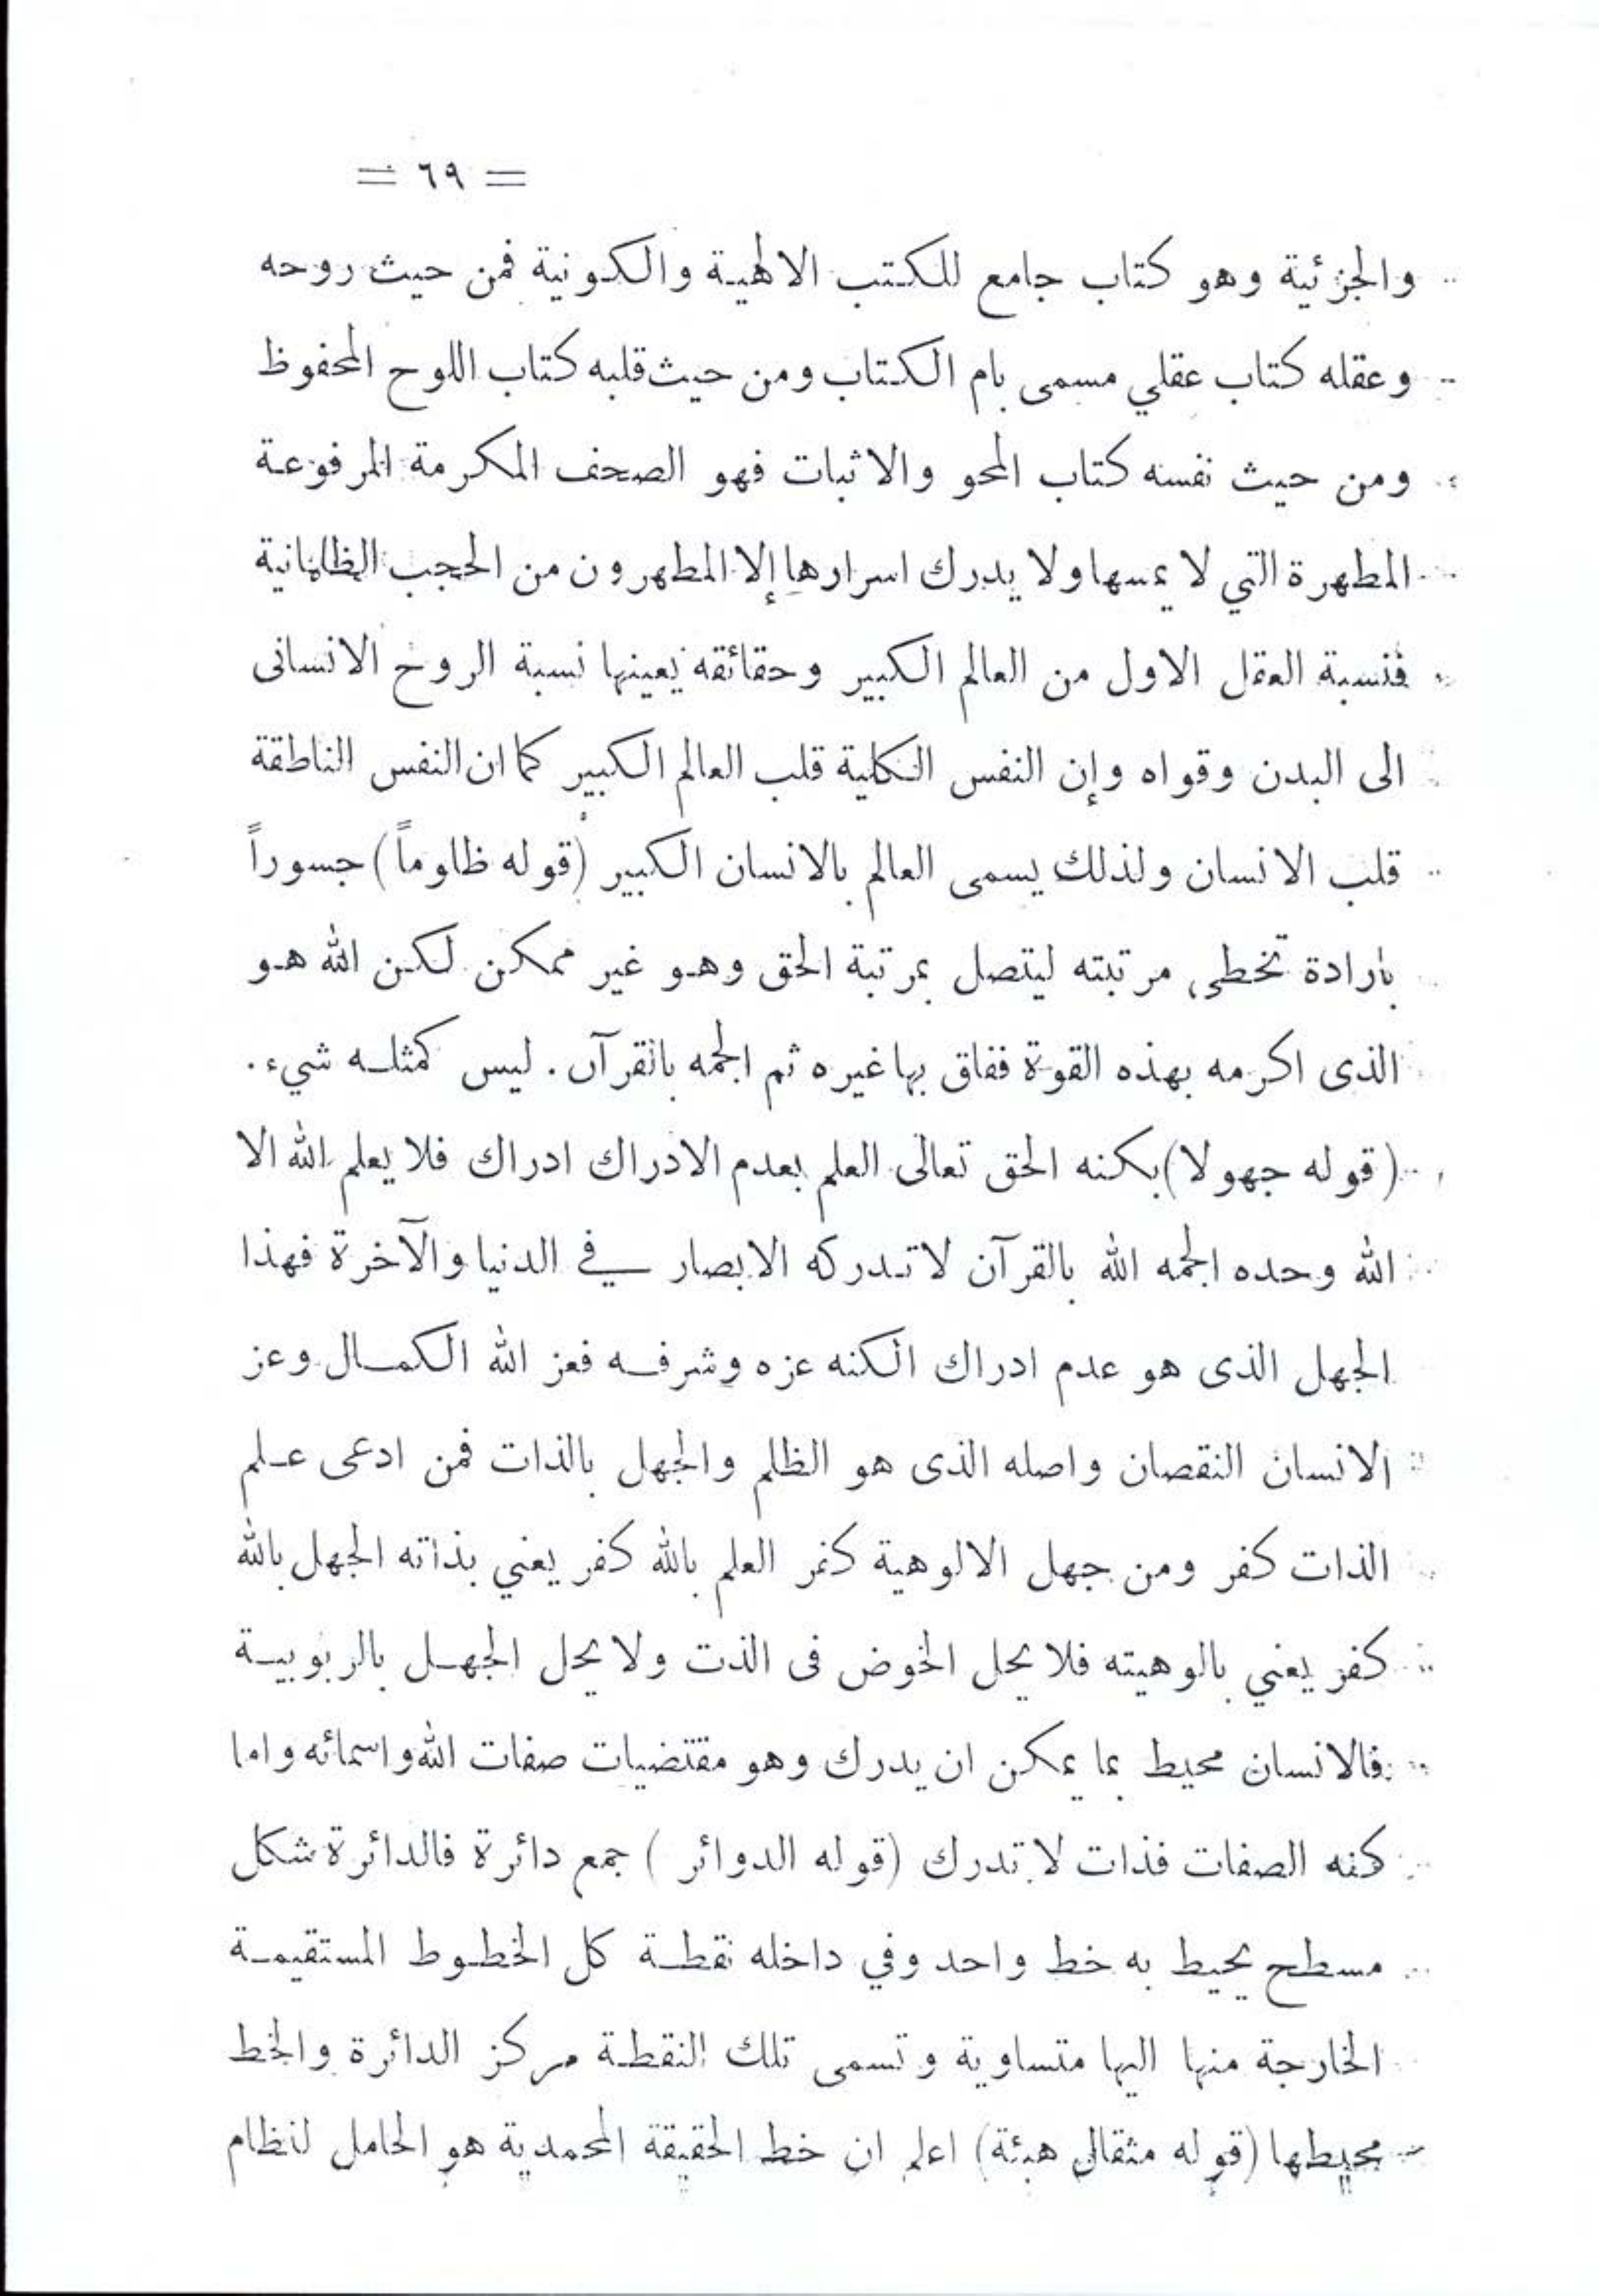 = ٦٩ =
والجزئية وهو كتاب جامع للكتب الالهية والكونية فمن حيث روحه
وعقله كتاب عقلي مسمى بام الكتاب ومن حيث قلبه كتاب اللوح المحفوظ
ومن حيث نفسه كتاب المحو والاثبات فهو الصحف المكرمة المرفوعة
المطهرة التي لا يمسها ولا يدرك اسرارها إلا المطهرون من الحجب الظلمانية
فنسبة العقل الاول من العالم الكبير وحقائقه يعينها نسبة الروح الانسانى
الى البدن وقواه وإن النفس الكلية قلب العالم الكبير كما ان النفس الناطقة
قلب الانسان ولذلك يسمى العالم بالانسان الكبير (قوله ظلوماً) جسوراً
بارادة تخطى مرتبته ليتصل بمرتبة الحق وهو غير ممكن لكن الله هو
الذى اكرمه بهذه القوة ففاق بها غيره ثم الجمه بالقرآن . ليس كمثله شيء .
(قوله جهولا) بكنه الحق تعالى العلم بعدم الادراك ادراك فلا يعلم الله الا
الله وحده الجمه الله بالقرآن لا تدركه الابصار في الدنيا والآخرة فهذا
الجهل الذى هو عدم ادراك الكنه عزه وشرفه فعز الله الكمال وعز
الانسان النقصان واصله الذى هو الظلم والجهل بالذات فمن ادعى علم
الذات كفر ومن جهل الالوهية كفر العلم بالله كفر يعني بذاته الجهل بالله
كفر يعني بالوهيته فلا يحل الخوض فى الذت ولا يحل الجهل بالربوبية
فالانسان محيط بما يمكن ان يدرك وهو مقتضيات صفات الله واسمائه واما
كنه الصفات فذات لا تدرك (قوله الدوائر ) جمع دائرة فالدائرة شكل
مسطح يحيط به خط واحد وفي داخله نقطة كل الخطوط المستقيمة
الخارجة منها اليها متساوية وتسمى تلك النقطة مركز الدائرة والخط
محيطها (قوله مثقال هبئة) اعلم ان خط الحقيقة المحمدية هو الحامل لنظام